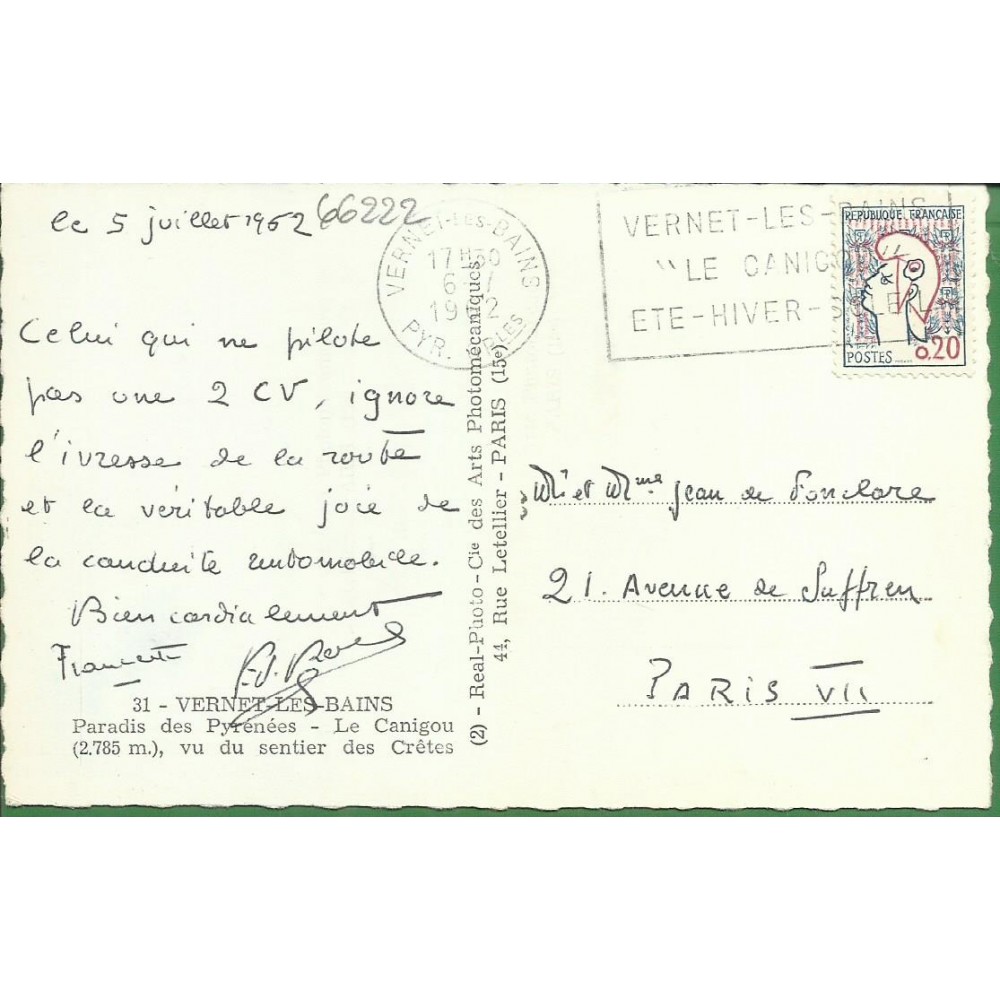 le 5 juillet 1962 66222
Celui qui ne pilote
pas une 2 CV, ignore
l'ivresse de la route
et la véritable joie de
la conduite automobile.
Bien cordialement
31 - VERNET-LES-BAINS
Paradis des Pyrénées - Le Canigou
(2.785 m.), vu du sentier des Crêtes
(2) - Real-Photo - Cie des Arts Photomécaniques
44, Rue Letellier - PARIS (15e)
VERNET-LES-BAINS
17H30
6
19 2
PYR. 
VERNET-LES-BAINS
"LE CANIG
ETE-HIVER-
REPUBLIQUE FRANÇAISE
POSTES
0,20
Mr et Mme Jean de Fonclare
21. Avenue de Suffren
PARIS VII